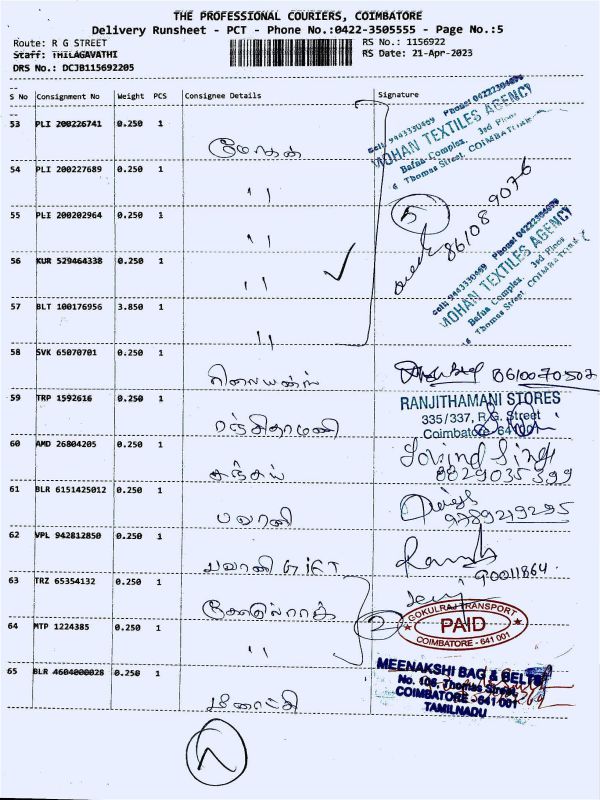 THE PROFESSIONAL COURIERS, COIMBATORE
Delivery Runsheet - PCT - Phone No.:0422-3505555 - Page No.:5
Route: R G STREET
RS No.: 1156922
Staff: THILAGAVATHI
RS Date: 21-Apr-2023
DRS No.: DCJB115692205
S No Consignment No Weight PCS Consignee Details Signature
53 PLI 200226741 0.250 1 மோகன்
Cell: 9443330469 Phone: 04222304696
MOHAN TEXTILES AGENCY
Bafna Complex, 3rd Floor
6 Thomas Street, COIMBATORE
54 PLI 200227689 0.250 1 " 
55 PLI 200202964 0.250 1 "
5
861089076
56 KUR 529464338 0.250 1 "
Cell: 9443330469 Phone: 04222304696
MOHAN TEXTILES AGENCY
Bafna Complex, 3rd Floor
6 Thomas Street, COIMBATORE
57 BLT 100176956 3.850 1 "
58 SVK 65070701 0.250 1 ரிலையன்ஸ்
59 TRP 1592616 0.250 1 ரஞ்சிதாமணி
RANJITHAMANI STORES
335/337, R.G. Street
Coimbatore 641 001
60 AMD 26804205 0.250 1 சஞ்சய்
Govind Singh
8829035399
61 BLR 6151425012 0.250 1 பவானி
9789219295
62 VPL 942812850 0.250 1 பவானி GIFT
90011864
63 TRZ 65354132 0.250 1 கோகுல்ராஜ்
2
GOKULRAJ TRANSPORT
PAID
COIMBATORE - 641 001
64 MTP 1224385 0.250 1 "
65 BLR 4604000028 0.250 1 மீனாட்சி
MEENAKSHI BAG & BELTS
No. 106, Thomas Street,
COIMBATORE - 641 001
TAMILNADU
7